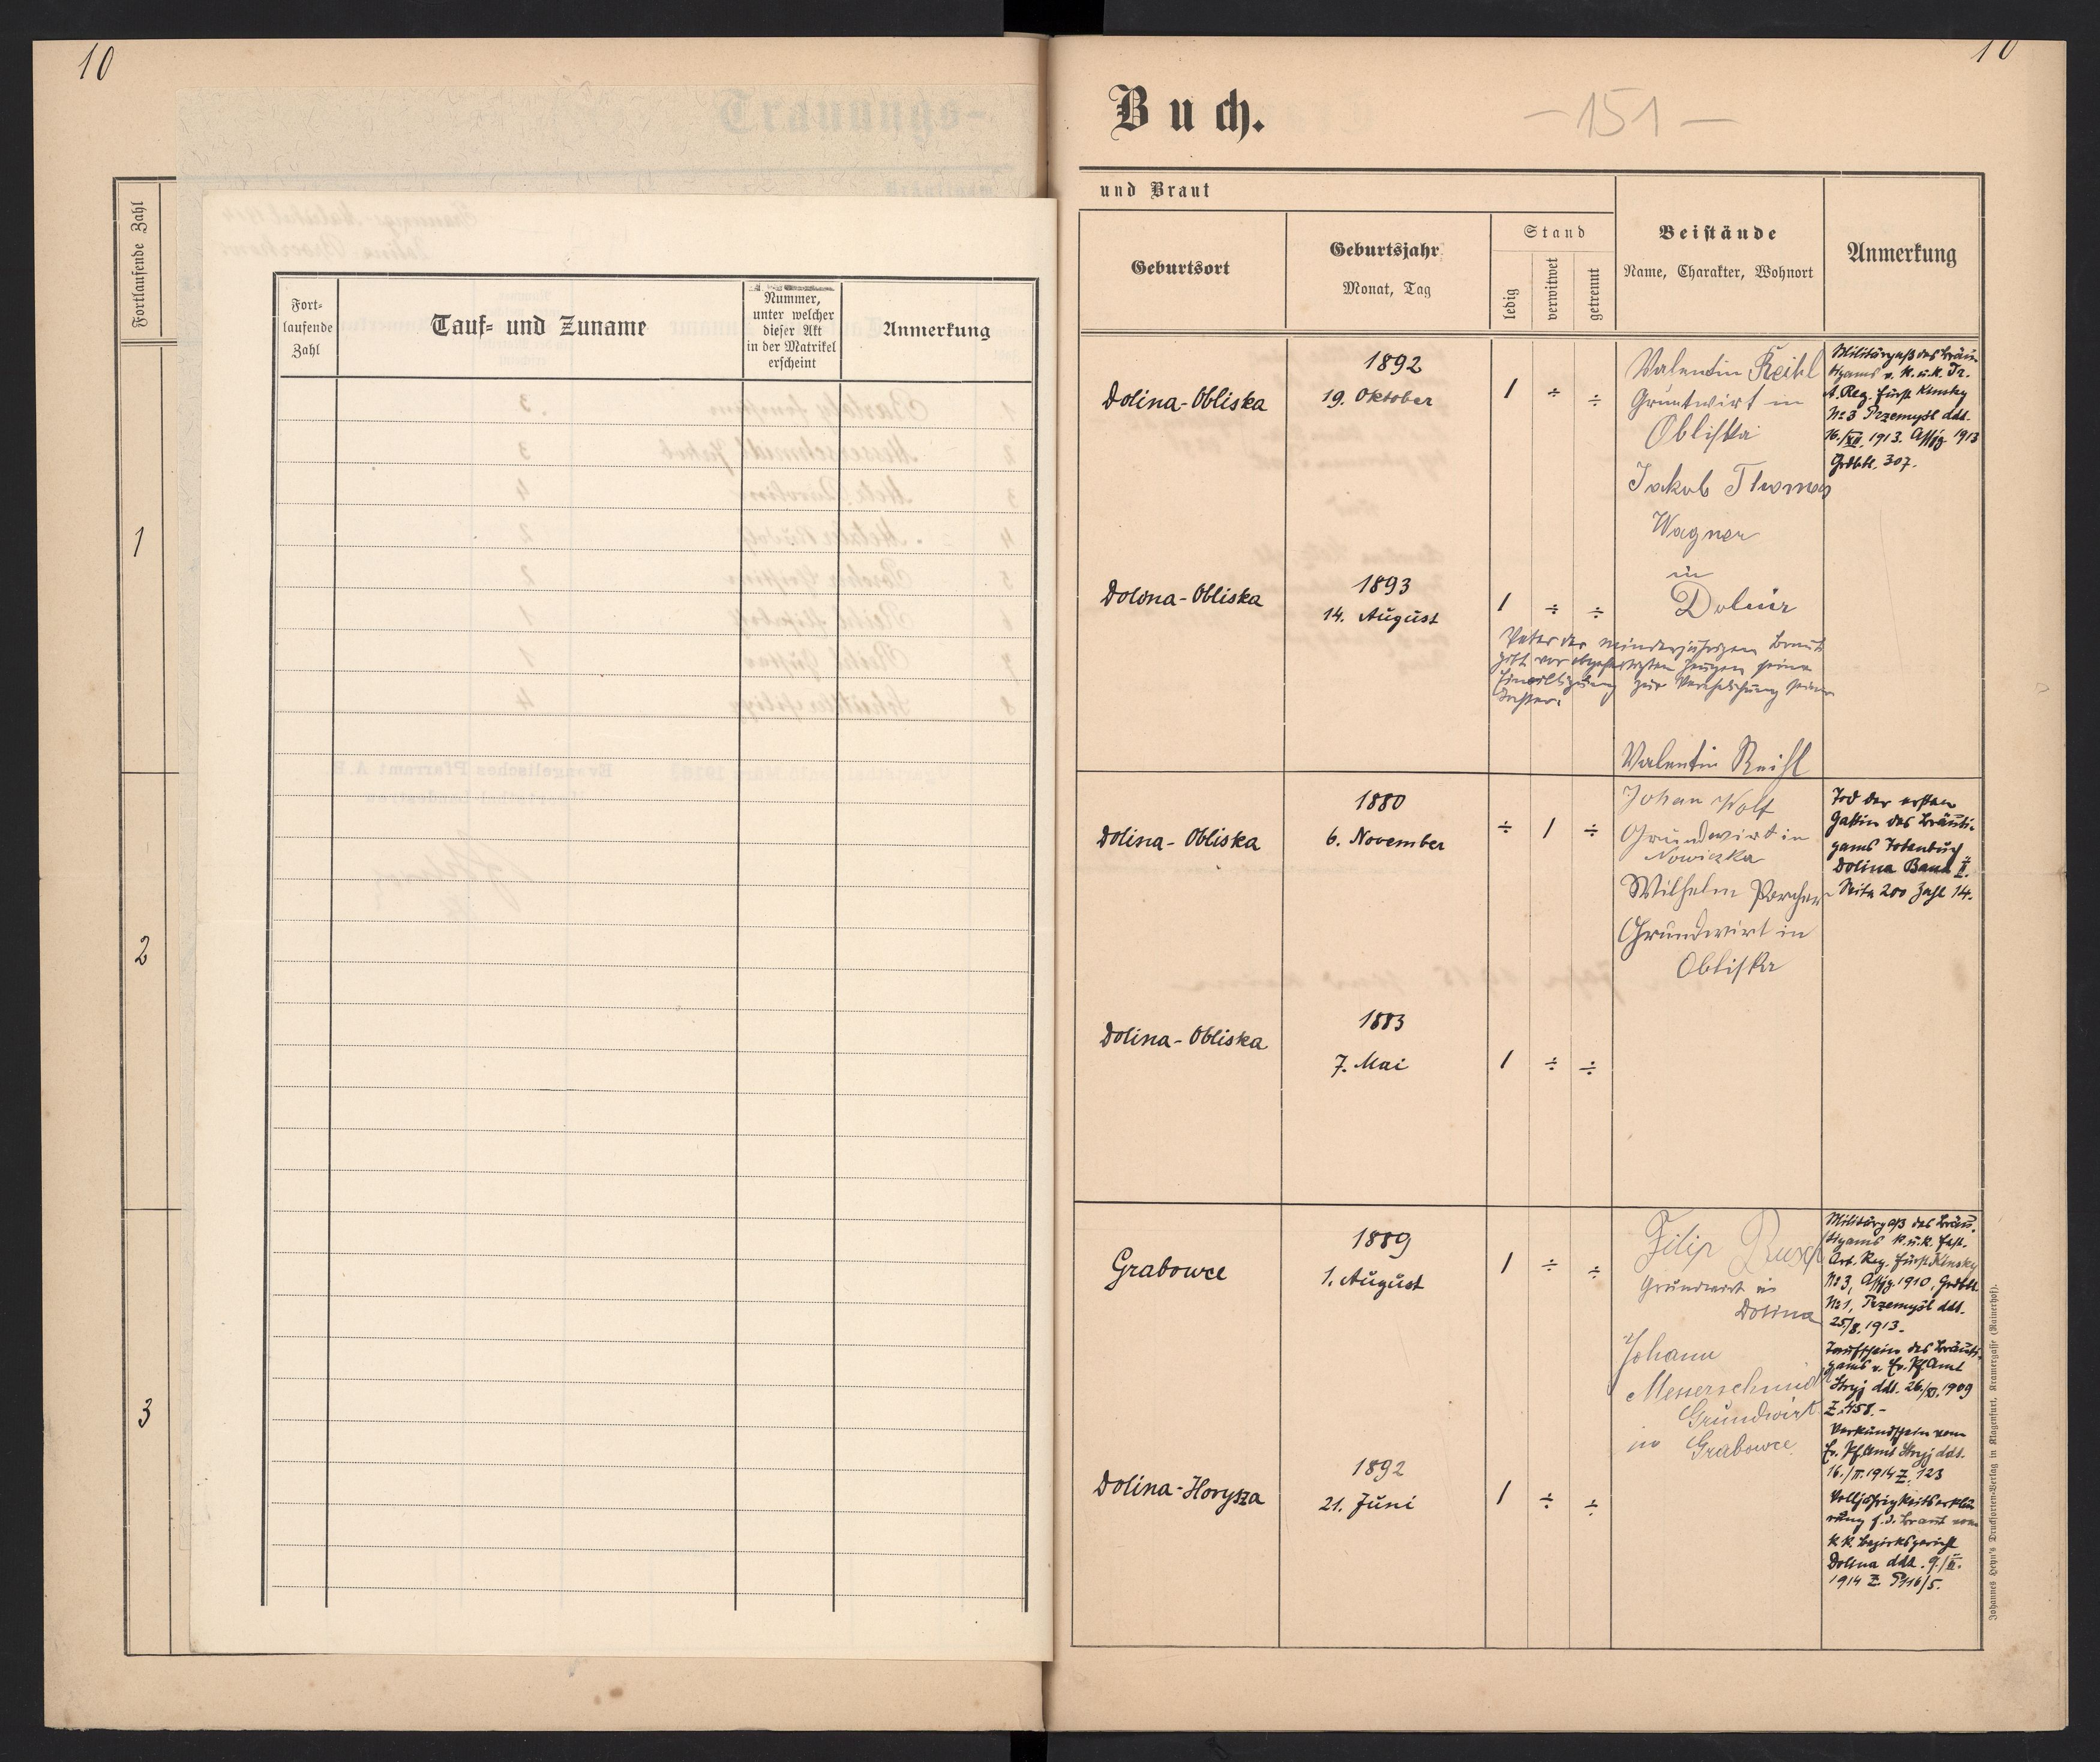 10
Fortlaufende Zahl
1
2
3
Fort-
laufende
Zahl
Tauf- und Zuname
Nummer,
unter welcher
dieser Akt
in der Matrikel
erscheint
Anmerkung
10
Buch.
– 151 –
und Braut
Geburtsort
Geburtsjahr
Monat, Tag
Stand
ledig
verwitwet
getrennt
Beistände
Name, Charakter, Wohnort
Anmerkung
Dolina-Obliska
1892
19. Oktober
1 ÷ ÷
Valentin Reihl
Gruntwirt in
Obliska
Jakob Thomas
Wagner
in
Dolina
Militärpaß des Bräu-
tigams v. K. u. K. Tr.
A. Reg. Fürst Kinsky
№ 3 Przemysl ddt.
16./XII. 1913. Assjg 1913
Grdbbl. 307.
Dolina-Obliska
1893
14. August
1 ÷ ÷
Vater der minderjährigen Braut
gibt vor abgefertigten Zeugen seine
Einwilligung zur Verehelichung seiner
Tochter.
Valentin Reihl
Dolina-Obliska
1880
6. November
÷ 1 ÷
Johan Wolf
Grundwirt in
Nowiczka
Wilhelm Porcher
Grundwirt in
Obliska
Tod der ersten
Gattin des Bräuti-
gams Totenbuch
Dolina Band II.
Seite 200 Zahl 14.
Dolina-Obliska
1883
7. Mai
1 ÷ ÷
Grabowce
1889
1. August
1 ÷ ÷
Filip Rusch
Grundwirt in
Dolina
Johann
Messerschmidt
Grundwirt
in Grabowce
Militärpaß des Bräu-
tigams K. u. K. Fest.
Art. Reg. Fürst Kinsky
№ 3, Assjg. 1910, Grdbbl.
№ 1, Przemysl ddt.
25./8. 1913.-
Taufschein des Bräuti-
gams v. Ev. Pf. Amt
Stryj ddt. 26./XI. 1909
Z. 458.-
Verkündschein vom
Ev. Pf. Amt Stryj ddt.
16./II. 1914 Z. 123
Volljährigkeitserklä-
rung f. d. Braut vom
K. K. Bezirksgericht
Dolina ddt. 9./II.
1914 Z. P116/5.
Dolina-Horysza
1892
21. Juni
1 ÷ ÷
Johannes Heyn's Drucksorten-Verlag in Klagenfurt, Kramergasse (Rainerhof).